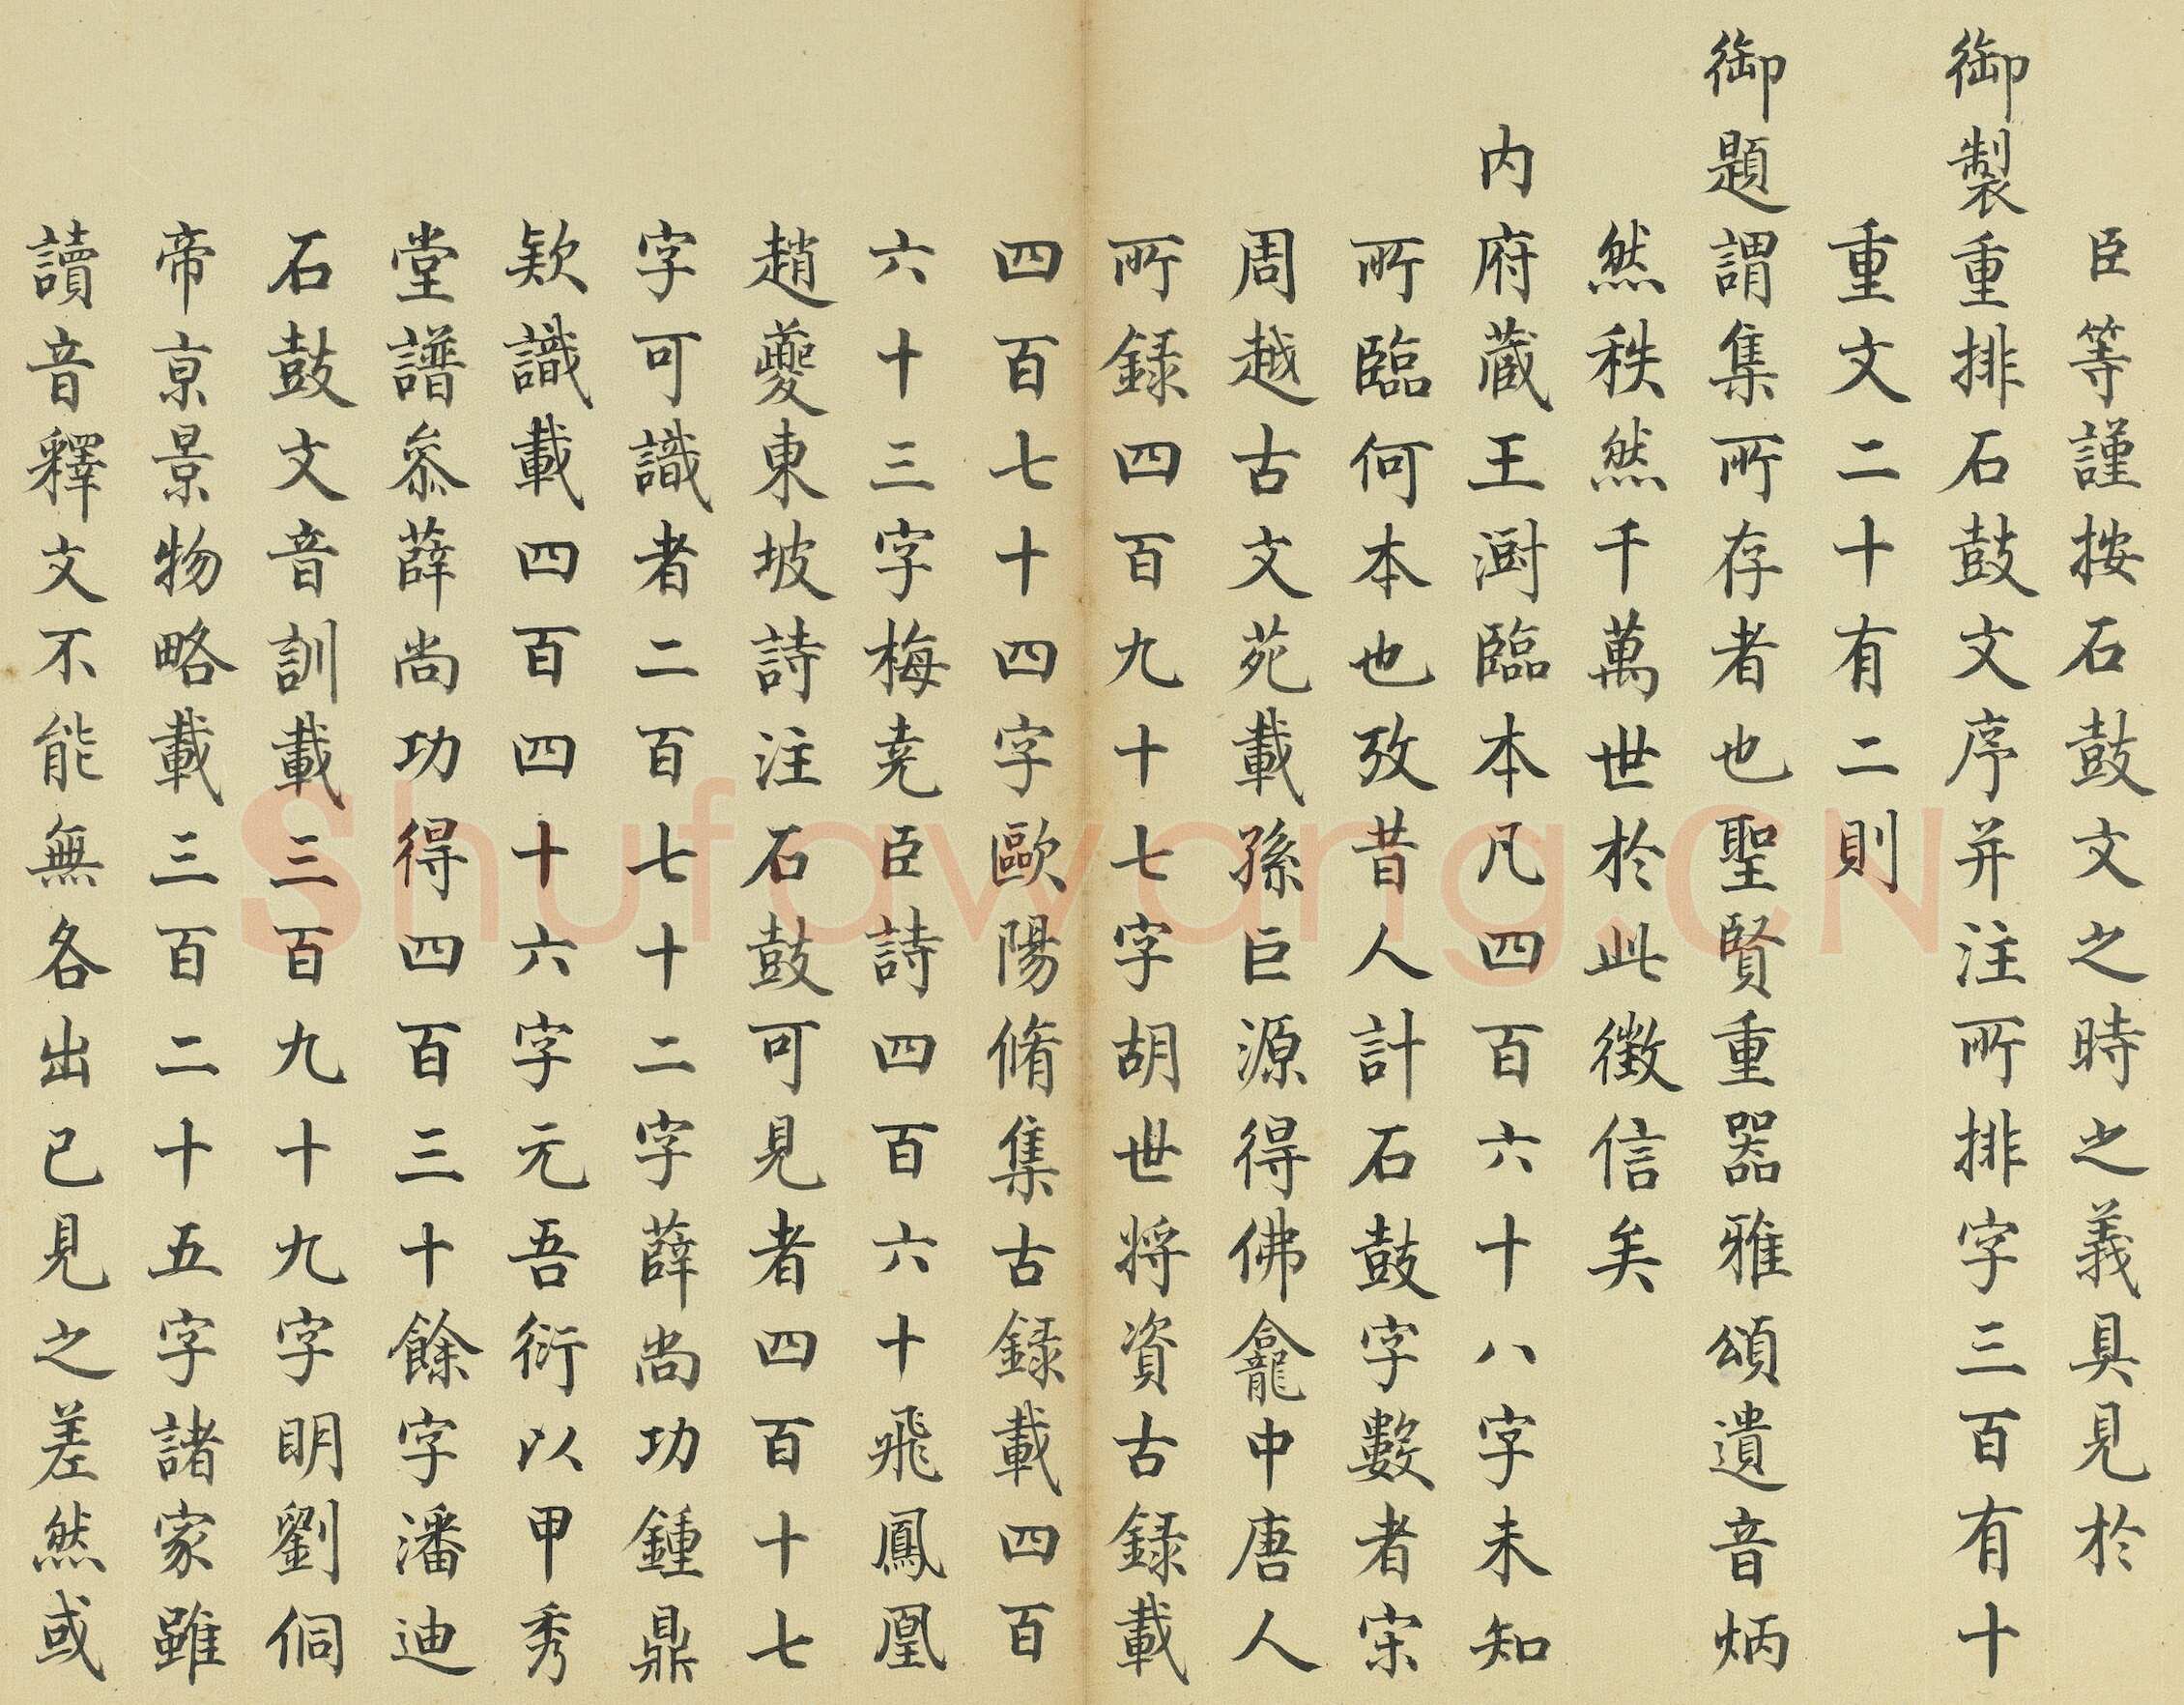 臣等謹按石鼓文之時之義具見於
御製重排石鼓文序并注所排字三百有十
重文二十有二則
御題謂集所存者也聖賢重器雅頌遺音炳
然秩然千萬世於此徵信矣
內府蔵王澍臨本凡四百六十八字未知
所臨何本也攷昔人計石鼓字數者宋
周越古文苑載孫巨源得佛龕中唐人
所録四百九十七字胡世将資古録載
四百七十四字歐陽脩集古録載四百
六十三字梅尭臣詩四百六十飛鳳凰
趙夔東坡詩注石鼓可見者四百十七
字可識者二百七十二字薛尚功鍾鼎
欵識載四百四十六字元吾衍以甲秀
堂譜叅薛尚功得四百三十餘字潘迪
石鼓文音訓載三百九十九字明劉侗
帝亰景物略載三百二十五字諸家雖
讀音釋文不能無各出已見之差然或
Shufawang.CN